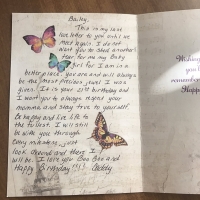 Bailey,
This is my last
love letter to you until we
meet again. I do not
want you to shed another
tear for me my Baby
Girl for I am in a
better place. you are and will always
be the most precious jewel I was
given. It is your 21st birthday and
I want you to always respect your
momma and stay true to yourself.
Be happy and live life to
the fullest. I will still
be with you through
every milestone, just
look around and there I
will be. I love you Boo Boo and
Happy Birthday!!! Daddy
Wishing
you
remember
Happ